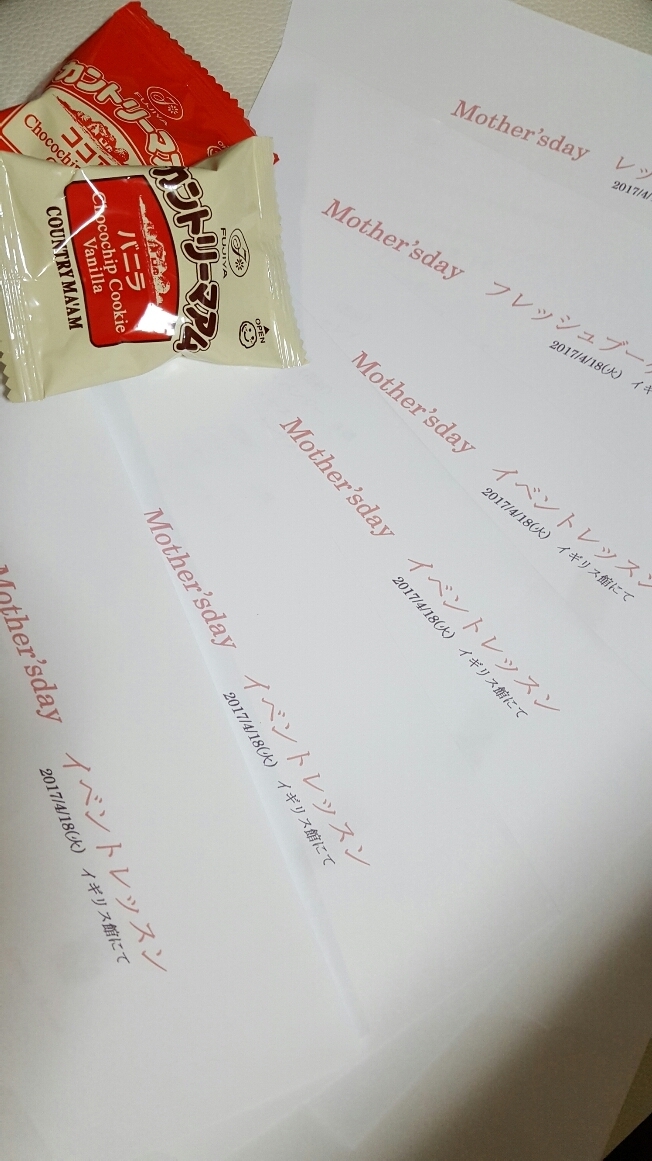 カントリーマア
FUJIYA
ココア
Chocochip
カントリーマアム
FUJIYA
バニラ
Chocochip Cookie
Vanilla
COUNTRY MA'AM
OPEN
Mother'sday レッ
2017/4/
Mother'sday フレッシュブーケ
2017/4/18(火) イギ
Mother'sday イベントレッスン
2017/4/18(火) イギリス館にて
Mother'sday イベントレッスン
2017/4/18(火) イギリス館にて
Mother'sday イベントレッスン
2017/4/18(火) イギリス館にて
Mother'sday イベントレッスン
2017/4/18(火) イギリス館にて